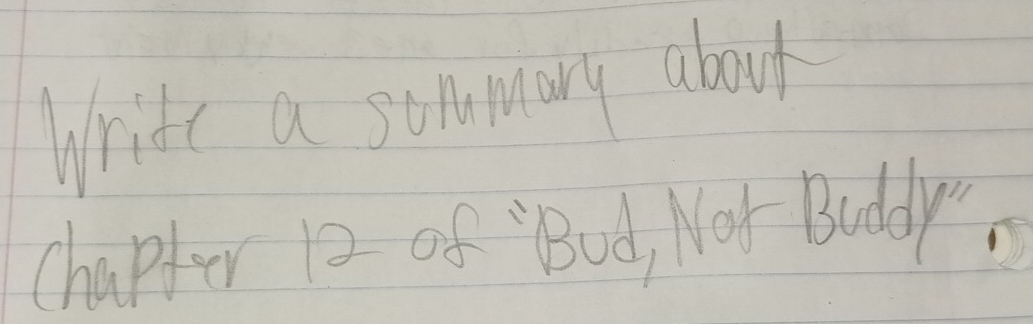 Write a summary about
Chapter 12 of "Bud, Not Buddy".